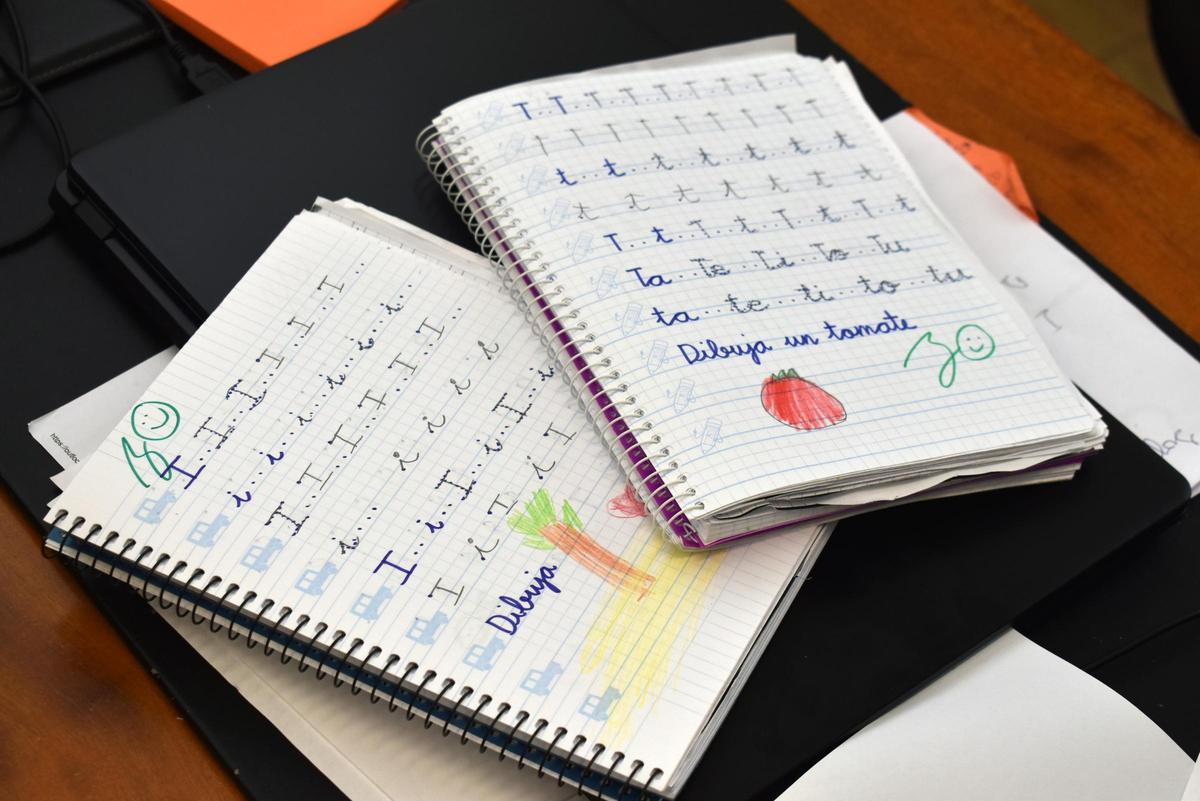 T..T..T..T..T..T..T..T..T
T T T T T T T T T
t...t...t...t...t...t...t
t t t t t t t
T..t..T..t..T..t..T..t
Ta...Te...Ti...To...Tu
ta...te...ti...to...tu
Dibuja un tomate
I...I...I...I...I...I...
i...i...i...i...i...i...
I...I...I...I...I...I..
i... i i i i
I...i...I...i...I...i
I i I i I
Dibuja